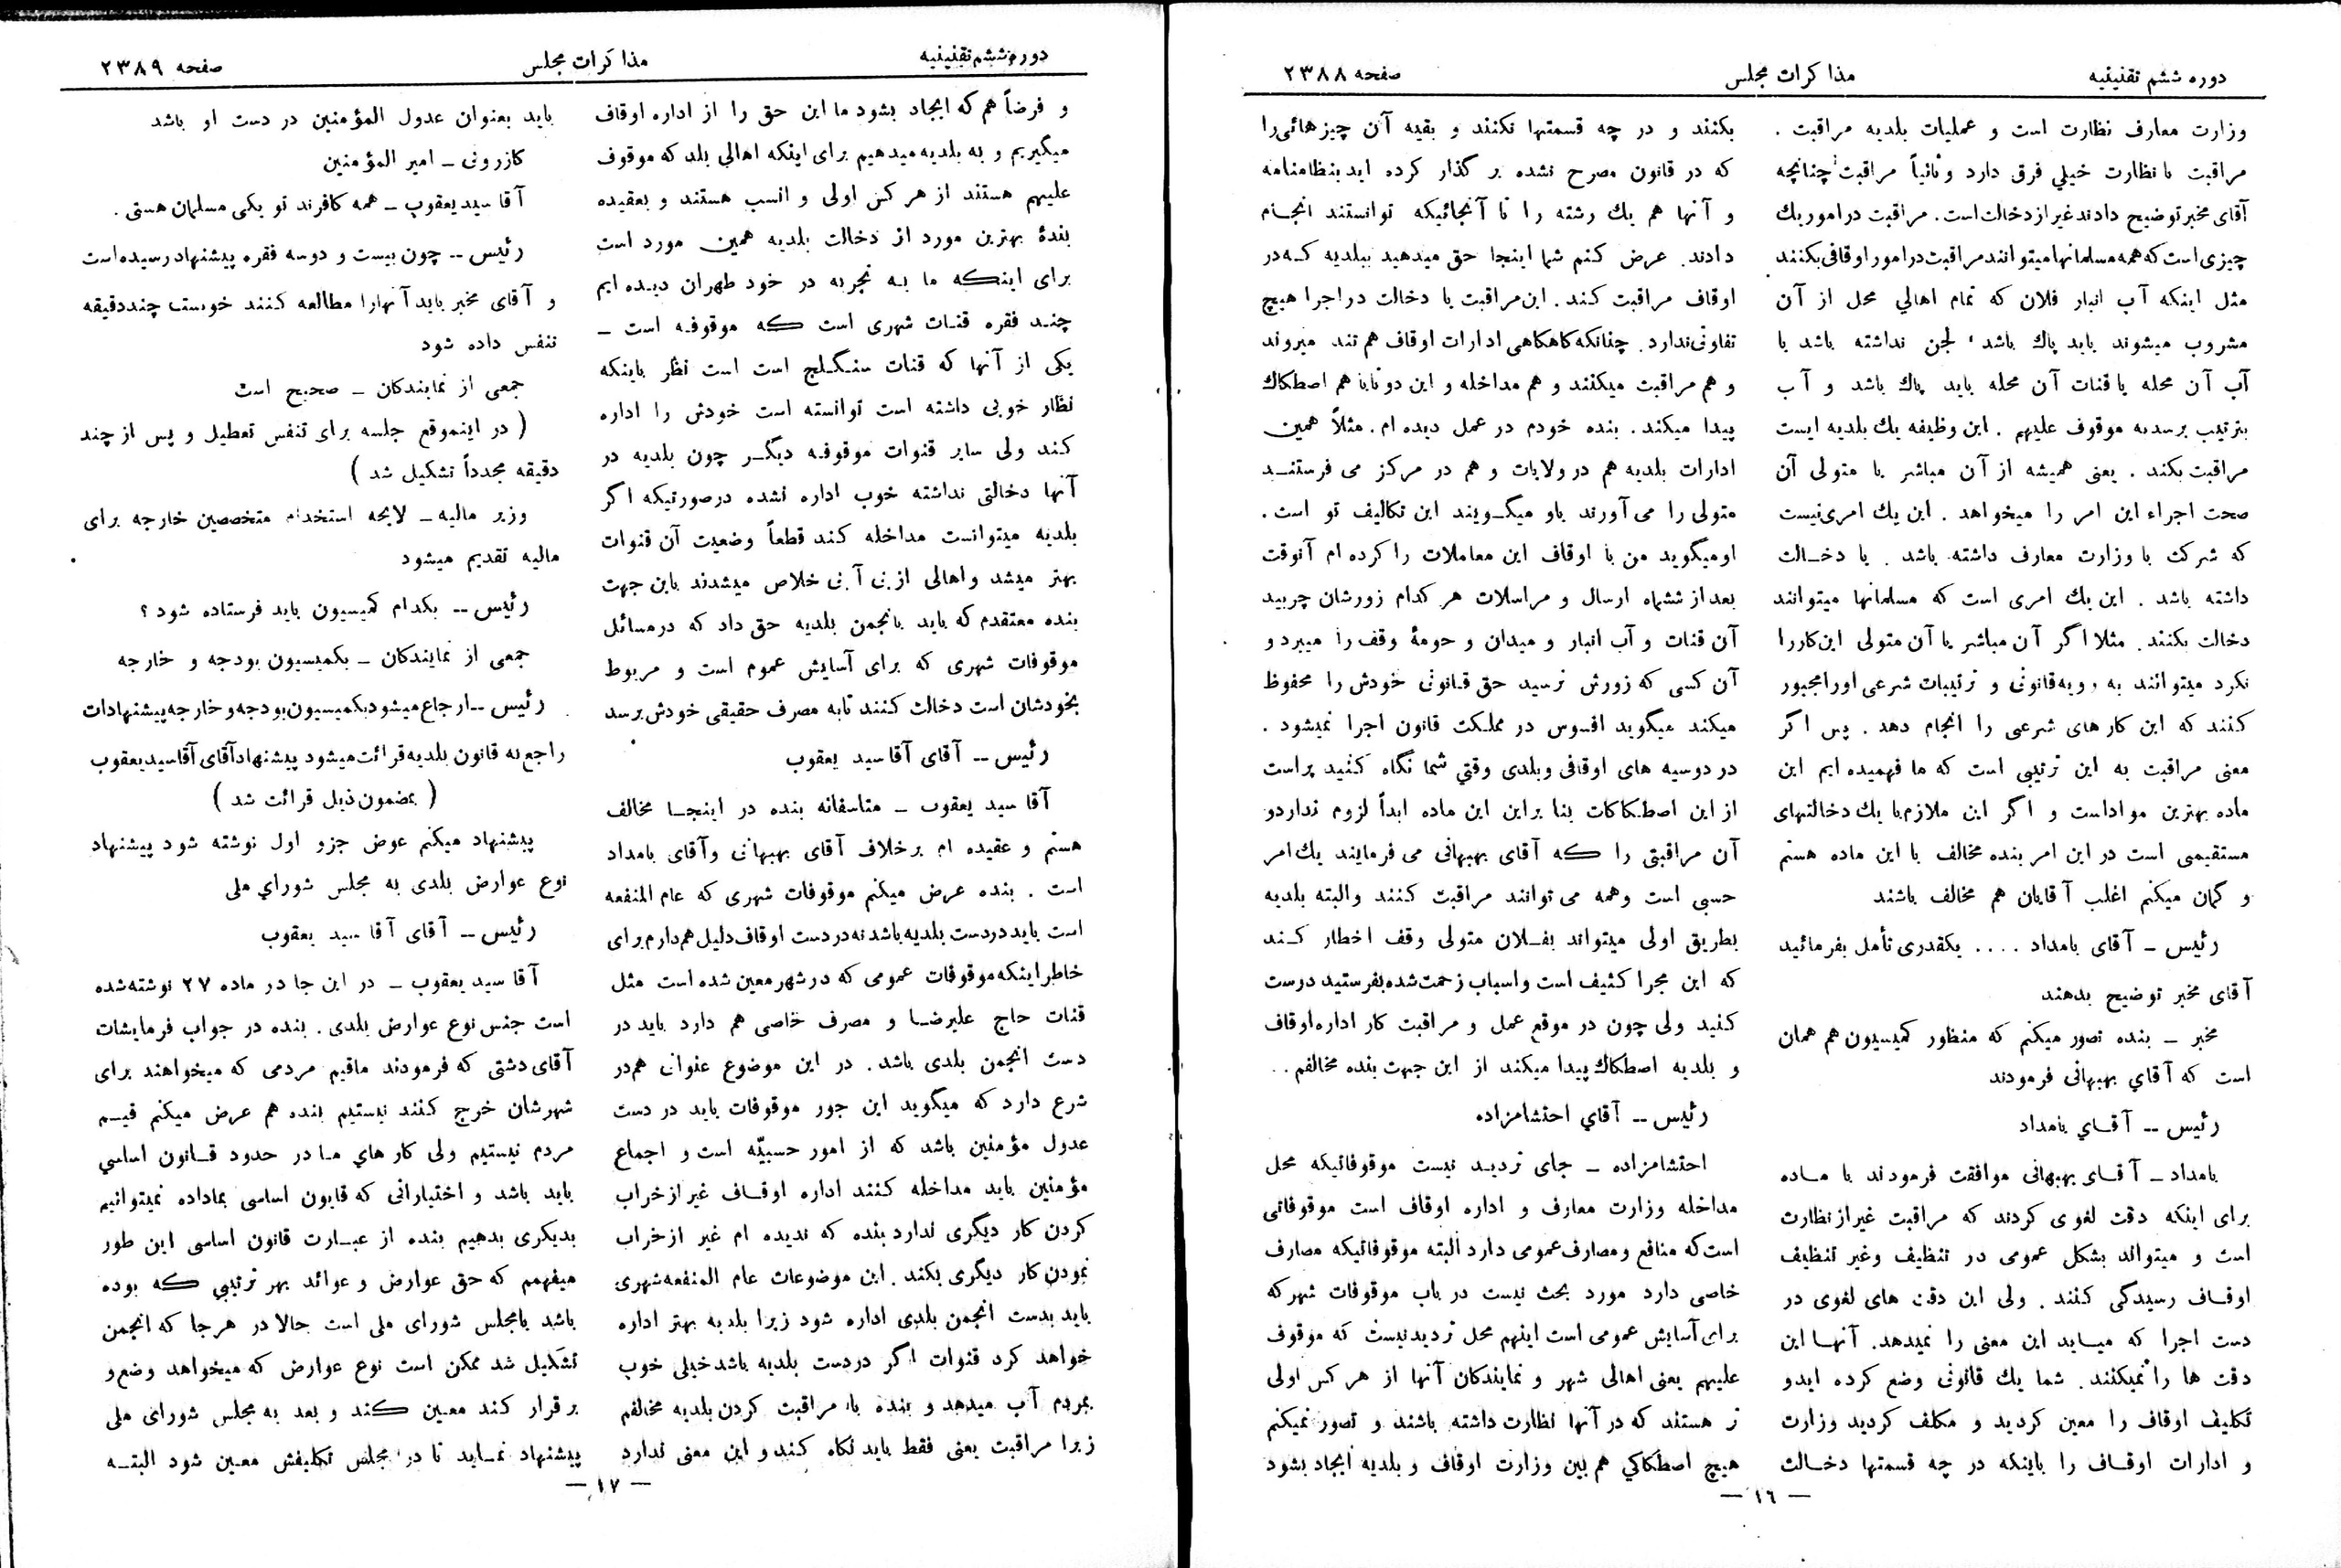 دوره ششم تقنینیه
مذاکرات مجلس
صفحه ۲۳۸۸
وزارت معارف نظارت است و عملیات بلدیه مراقبت .
مراقبت با نظارت خیلي فرق دارد و ثانیاً مراقبت چنانچه
آقای مخبر توضیح دادند غیر از دخالت است. مراقبت در امور یك
چیزی است که همه مسلمانها میتوانند مراقبت در امور اوقافی بکنند
مثل اینکه آب انبار فلان که تمام اهالي محل از آن
مشروب میشوند باید پاك باشد ، لجن نداشته باشد یا
آب آن محله یا قنات آن محله باید پاك باشد و آب
بترتیب برسد به موقوف علیهم . این وظیفه یك بلدیه ایست
مراقبت بکند . یعنی همیشه از آن مباشر یا متولی آن
صحت اجراء این امر را میخواهد . این یك امری نیست
که شرکت با وزارت معارف داشته باشد . یا دخـالت
داشته باشد . این یك امری است که مسلمانها میتوانند
دخالت بکنند. مثلا اگر آن مباشر یا آن متولی این کار را
نکرد میتوانند به رویه قانونی و ترتیبات شرعی او را مجبور
کنند که این کار های شرعی را انجام دهد . پس اگر
معنی مراقبت به این ترتیبی است که ما فهمیده ایم این
ماده بهترین مواد است و اگر این ملازم با یك دخالتهای
مستقیمی است در این امر بنده مخالف با این ماده هستم
و گمان میکنم اغلب آقایان هم مخالف باشند
رئیس ـ آقای بامداد .... یکقدری تأمل بفرمائید
آقای مخبر توضیح بدهند
مخبر ـ بنده تصور میکنم که منظور کمیسیون هم همان
است که آقاي بهبهانی فرمودند
رئیس ــ آقـاي بامداد
بامداد ـ آقـای بهبهانی موافقت فرمودند با مـاده
برای اینکه دقت لغوی کردند که مراقبت غیر از نظارت
است و میتواند بشکل عمومی در تنظیف وغیر تنظیف
اوقـاف رسیدگی کنند . ولی این دقت های لغوی در
دست اجرا که میـاید این معنی را نمیدهد. آنهـا این
دقت ها را نمیکنند. شما یك قانونی وضع کرده اید و
تکلیف اوقاف را معین کردید و مکلف کردید وزارت
و ادارات اوقـاف را باینکه در چه قسمتها دخـالت
بکنند و در چه قسمتها نکنند و بقیه آن چیز هائی را
که در قانون مصرح نشده بر گذار کرده اید بنظامنامه
و آنها هم یك رشته را تا آنجائیکه توانستند انجـام
دادند. عرض کنم شما اینجا حق میدهید ببلدیه کـه در
اوقاف مراقبت کند. این مراقبت با دخالت در اجرا هیچ
تفاوتی ندارد. چنانکه گاهگاهی ادارات اوقاف هم تند میروند
و هم مراقبت میکنند و هم مداخله و این دو تا با هم اصطکاك
پیدا میکند. بنده خودم در عمل دیده ام. مثلاً همین
ادارات بلدیه هم در ولایات و هم در مرکز می فرستنـد
متولی را می آورند باو میگـویند این تکالیف تو است.
او میگوید من با اوقاف این معاملات را کرده ام آنوقت
بعد از ششماه ارسال و مراسلات هر کدام زورشان چربید
آن قنات و آب انبار و میدان و حومهٔ وقف را میبرد و
آن کسی که زورش نرسید حق قـانونی خودش را محفوظ
میکند میگوید افسوس در مملکت قانون اجرا نمیشود .
در دوسیه های اوقافی و بلدی وقتي شما نگاه کنید پر است
از این اصطکاکات بنا براین این ماده ابداً لزوم ندارد و
آن مراقبتی را کـه آقای بهبهانی می فرمایند یك امر
حسبی است وهمه می توانند مراقبت کنند والبته بلدیه
بطریق اولی میتواند بفـلان متولی وقف اخطار کـند
که این مجرا کثیف است و اسباب زحمت شده بفرستید درست
کنید ولی چون در موقع عمل و مراقبت کار اداره اوقاف
و بلدیه اصطکاك پیدا میکند از این جهت بنده مخالفم ..
رئیس ــ آقاي احتشامزاده
احتشامزاده ـ جای تردیـد نیست موقوفاتیکه محل
مداخله وزارت معارف و اداره اوقاف است موقوفاتی
است که منافع و مصارف عمومی دارد البته موقوفاتیکه مصارف
خاصی دارد مورد بحث نیست در باب موقوفات شهر که
برای آسایش عمومی است اینهم محل تردید نیست که موقوف
علیهم یعنی اهالی شهر و نمایندگان آنها از هر کس اولی
تر هستند که در آنها نظارت داشته باشند و تصور نمیکنم
هیچ اصطکاکي هم بین وزارت اوقاف و بلدیه ایجاد بشود
— ۱۶ —
دوره ششم تقنینیه
مذاکرات مجلس
صفحه ۲۳۸۹
و فرضاً هم که ایجاد بشود ما این حق را از اداره اوقاف
میگیریم و به بلدیه میدهیم برای اینکه اهالی بلد که موقوف
علیهم هستند از هر کس اولی و انسب هستند و بعقیده
بندهٔ بهترین مورد از دخالت بلدیه همین مورد است
برای اینکه ما بـه تجربه در خود طهران دیـده ایم
چنـد فقره قنـات شهری است کـه موقوفـه است ـ
یکی از آنها که قنات سنـگـلج است است نظر باینکه
نظار خوبی داشته است توانسته است خودش را اداره
کـند ولی سایر قنوات موقوفـه دیگـر چون بلدیه در
آنها دخالتی نداشته خوب اداره نشده درصورتیکه اگر
بلدیه میتوانست مداخله کند قطعاً وضعیت آن قنوات
بهتر میشد و اهالی از بی آبی خلاص میشدند باین جهت
بنده معتقدم که باید بانجمن بلدیه حق داد که در مسائل
موقوفات شهری که برای آسایش عموم است و مربوط
بخودشان است دخالت کنند تا به مصرف حقیقی خودش برسد
رئیس ــ آقای آقا سید یعقوب
آقا سید یعقوب ـ متاسفانه بنده در اینجـا مخالف
هستم و عقیده ام بر خلاف آقای بهبهانی وآقای بامداد
است . بنده عرض میکنم موقوفات شهری که عام المنفعه
است باید در دست بلدیه باشد نه در دست اوقاف دلیل هم دارم برای
خاطر اینکه موقوفات عمومی که در شهر معین شده است مثل
قنات حاج علیرضـا و مصرف خاصی هم دارد باید در
دست انجمن بلدی باشد. در این موضوع عنوانی هم در
شرع دارد که میگوید این جور موقوفات باید در دست
عدول مؤمنین باشد که از امور حسبیّه است و اجماع
مؤمنین باید مداخله کنند اداره اوقـاف غیر از خراب
کردن کار دیگری ندارد بنده که ندیده ام غیر از خراب
نمودن کار دیگری بکند. این موضوعات عام المنفعه شهری
باید بدست انجمن بلدی اداره شود زیرا بلدیه بهتر اداره
خواهد کرد قنوات اگر در دست بلدیه باشد خیلی خوب
بمردم آب میدهد و بنده با، مراقبت کردن بلدیه مخالفم
زیرا مراقبت یعنی فقط باید نگاه کند و این معنی ندارد
باید بعنوان عدول المؤمنین در دست او باشد
کازرونی ـ امیر المؤمنین
آقا سید یعقوب ـ همه کافرند تو یکی مسلمان هستی .
رئیس ــ چون بیست و دو سه فقره پیشنهاد رسیده است
و آقای مخبر باید آنها را مطالعه کنند خوبست چند دقیقه
تنفس داده شود
جمعی از نمایندگان ـ صحیح است
( در اینموقع جلسه برای تنفس تعطیل و پس از چند
دقیقه مجدداً تشکیل شد )
وزیر مالیه ـ لایحه استخدام متخصصین خارجه برای
مالیه تقدیم میشود
رئیس ــ بکدام کمیسیون باید فرستاده شود ؟
جمعی از نمایندگان ـ بکمیسیون بودجه و خارجه
رئیس ــ ارجاع میشود بکمیسیون بودجه و خارجه پیشنهادات
راجع به قانون بلدیه قرائت میشود پیشنهاد آقای آقا سید یعقوب
( بمضمون ذیل قرائت شد )
پیشنهاد میکنم عوض جزو اول نوشته شود پیشنهاد
نوع عوارض بلدی به مجلس شوراي ملی
رئیس ــ آقای آقا سید یعقوب
آقا سید یعقوب ـ در این جا در ماده ۲۷ نوشته شده
است جنس نوع عوارض بلدی. بنده در جواب فرمایشات
آقای دشتی که فرمودند ما قیم مردمی که میخواهند برای
شهرشان خرج کنند نیستیم بنده هم عرض میکنم قیـم
مردم نیستیم ولی کار هاي مـا در حدود قـانون اساسي
باید باشد و اختیاراتی که قانون اساسی بما داده نمیتوانیم
بدیگری بدهیم بنده از عبـارت قانون اساسی این طور
میفهمم که حق عوارض و عوائد بهر ترتیبی کـه بوده
باشد با مجلس شورای ملی است حالا در هر جا که انجمن
تشکیل شد ممکن است نوع عوارض که میخواهد وضع و
بر قرار کند معین کـند و بعد به مجلس شورای ملی
پیشنهاد نمـاید تا در مجلس تکلیفش معین شود البتـه
— ۱۷ —